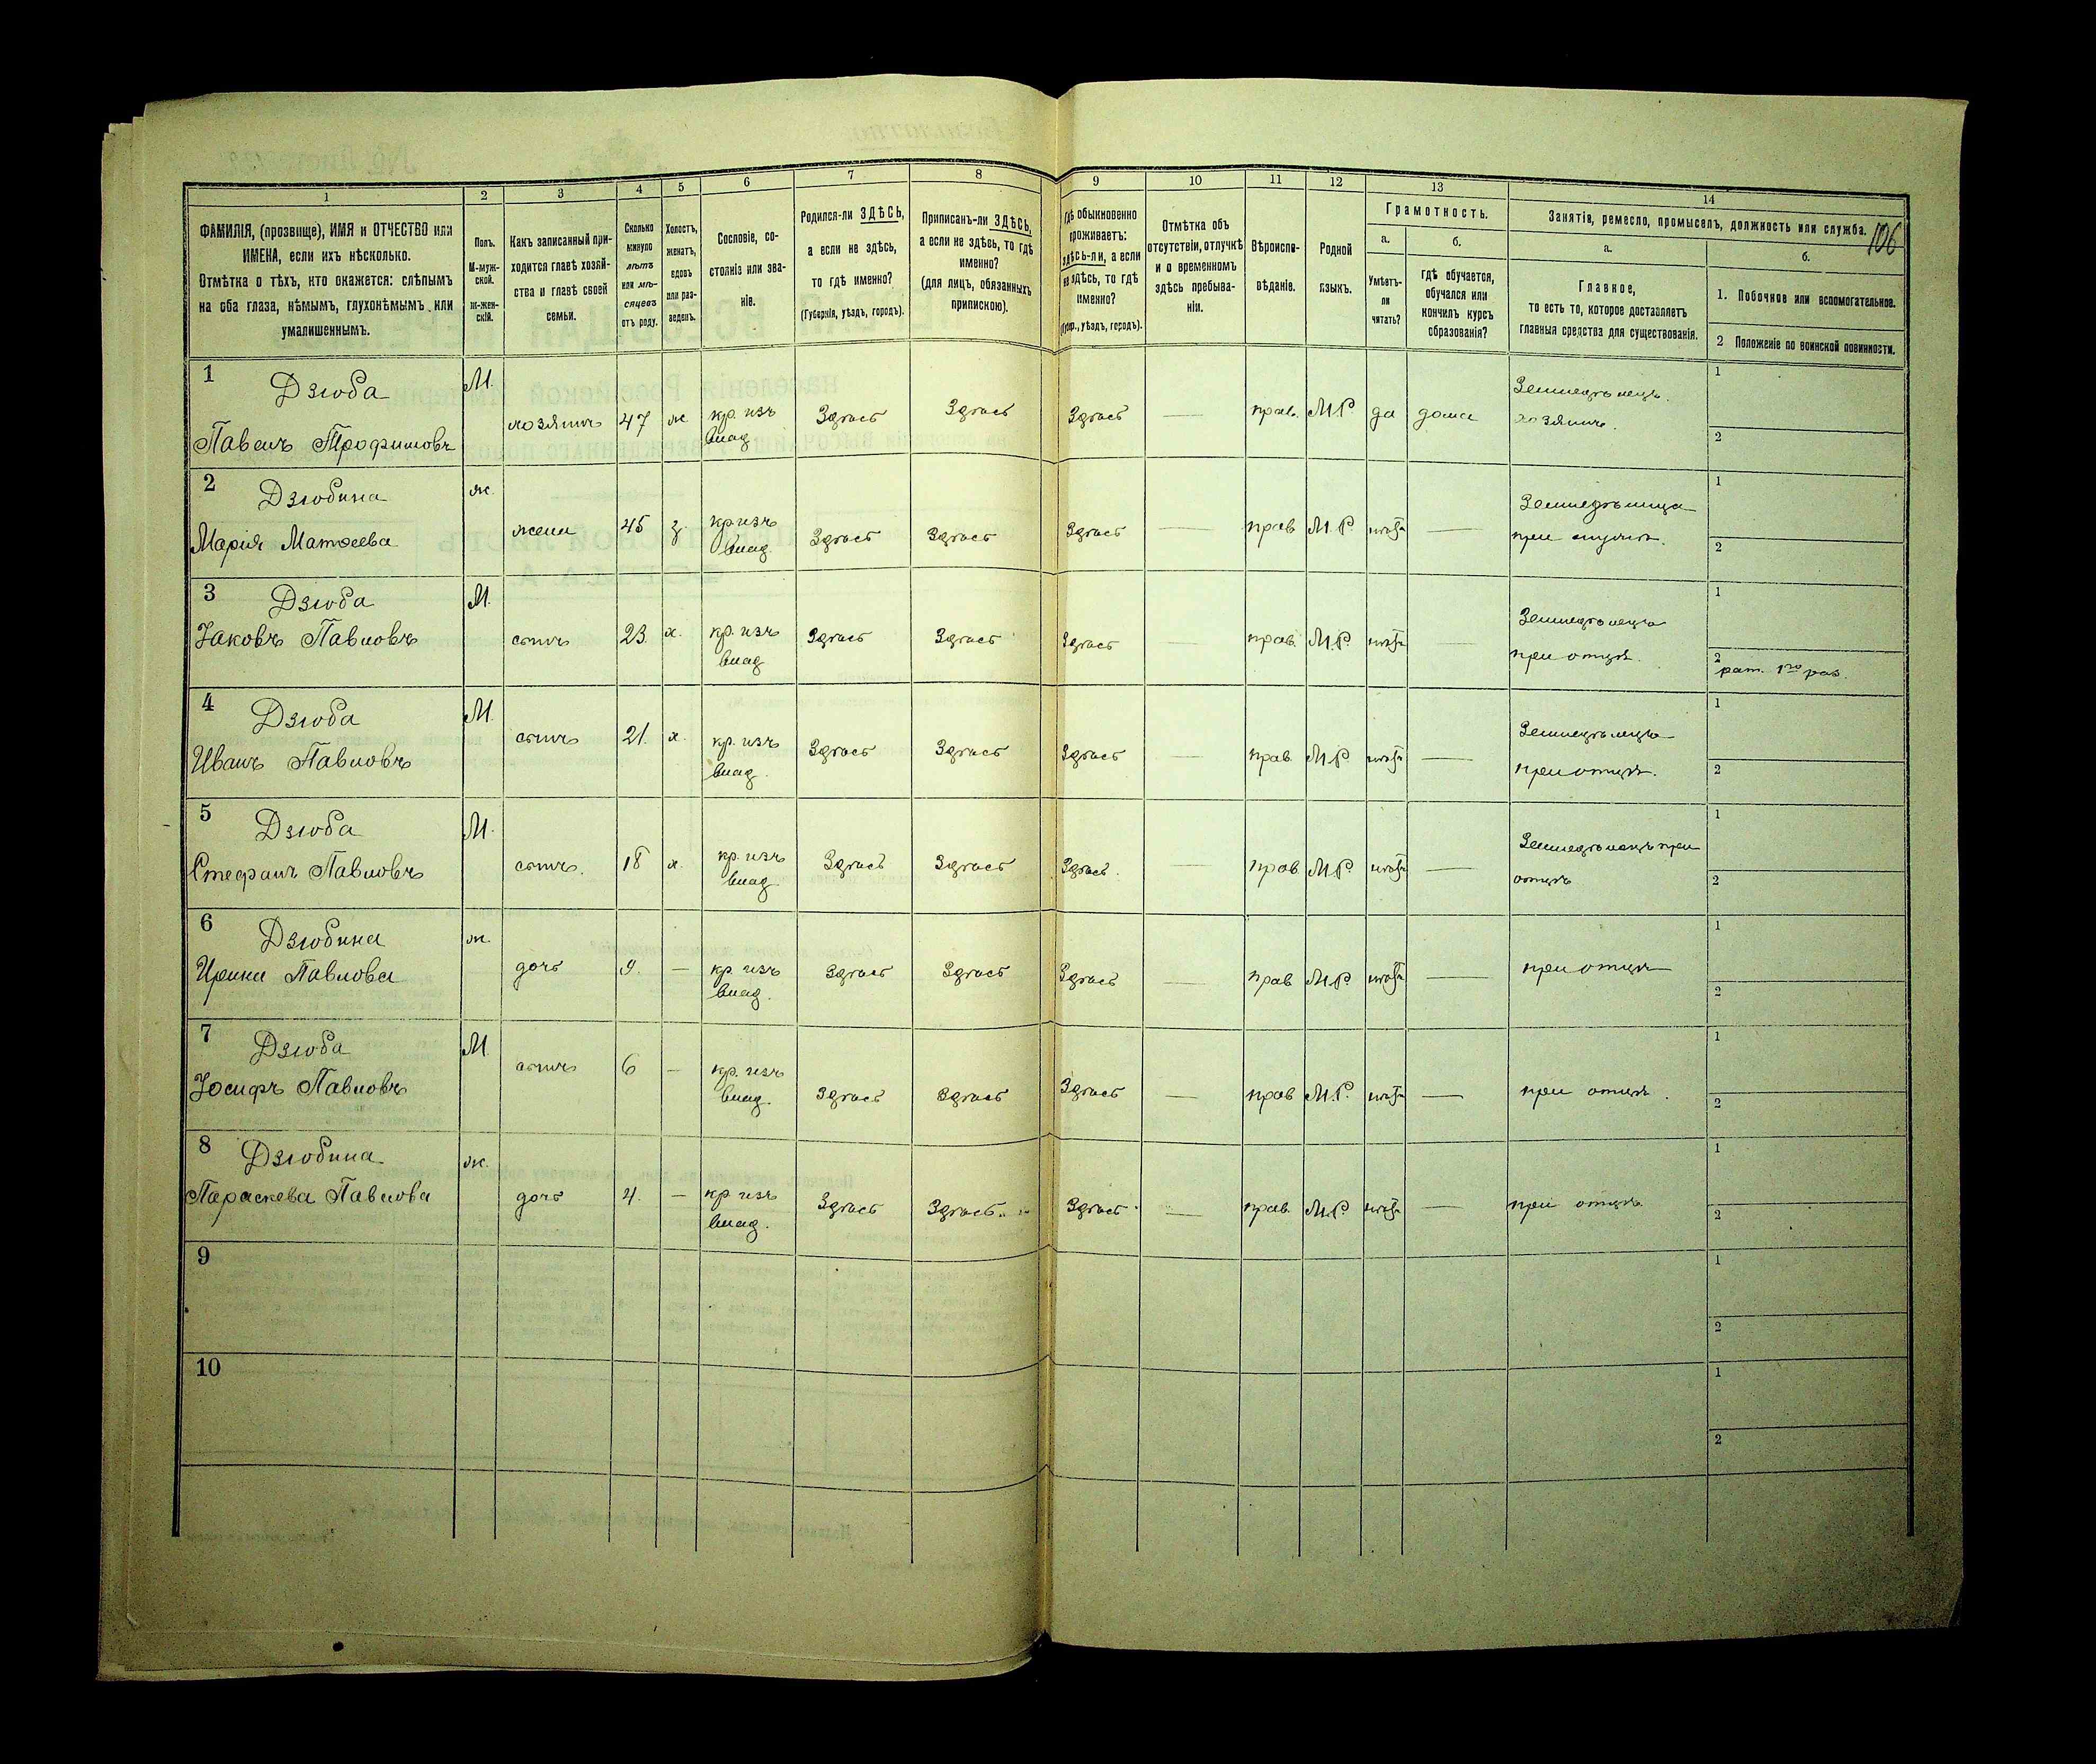 106
1
2
3
4
5
6
7
8
9
10
11
12
13
14
ФАМИЛІЯ, (прозвище), ИМЯ и ОТЧЕСТВО или
ИМЕНА, если ихъ нѣсколько.
Отмѣтка о тѣхъ, кто окажется: слѣпымъ
на оба глаза, нѣмымъ, глухонѣмымъ или
умалишеннымъ.
Полъ.
М-муж-
ской.
Ж-жен-
скій.
Какъ записанный при-
ходится главѣ хозяй-
ства и главѣ своей
семьи.
Сколько
минуло
лѣтъ
или мѣ-
сяцевъ
отъ роду.
Холостъ,
женатъ,
вдовъ
или раз-
веденъ.
Сословіе, со-
стояніе или зва-
ніе.
Родился-ли ЗДѢСЬ,
а если не здѣсь,
то гдѣ именно?
(Губернія, уѣздъ, городъ).
Приписанъ-ли ЗДѢСЬ,
а если не здѣсь, то гдѣ
именно?
(для лицъ, обязанныхъ
припискою).
Гдѣ обыкновенно
проживаетъ:
здѣсь-ли, а если
не здѣсь, то гдѣ
именно?
(Губер., уѣздъ, городъ).
Отмѣтка объ
отсутствіи, отлучкѣ
и о временномъ
здѣсь пребыва-
ніи.
Вѣроиспо-
вѣданіе.
Родной
языкъ.
Грамотность.
а.
Умѣетъ-
ли
читать?
б.
гдѣ обучается,
обучался или
кончилъ курсъ
образованія?
Занятія, ремесло, промыселъ, должность или служба.
а.
Главное,
то есть то, которое доставляетъ
главныя средства для существованія.
б.
1. Побочное или вспомогательное.
2 Положеніе по воинской повинности.
1 Дзюба М.
Павелъ Трофимовъ хозяинъ 47 ж кр. изъ влад Здѣсь Здѣсь Здѣсь — прав. М.Р да дома Земледѣлецъ. хозяинъ. 1 2
2 Дзюбина ж.
Марія Матѳеева жена 45 з. кр. изъ влад. Здѣсь Здѣсь Здѣсь — прав М.Р. нѣтъ — Земледѣлица при мужѣ. 1 2
3 Дзюба М.
Іаковъ Павловъ сынъ 23. х. кр. изъ влад Здѣсь Здѣсь Здѣсь — прав. М.Р. нѣтъ — Земледѣлецъ при отцѣ. 1 2 рат. 1го раз.
4 Дзюба М.
Иванъ Павловъ сынъ 21. х. кр. изъ влад. Здѣсь Здѣсь Здѣсь — прав. М.Р. нѣтъ — Земледѣлецъ при отцѣ. 1 2
5 Дзюба М.
Стефанъ Павловъ сынъ. 18 х. кр. изъ влад Здѣсь Здѣсь Здѣсь. — прав М.Р. нѣтъ — Земледѣлецъ при отцѣ 1 2
6 Дзюбина ж.
Ирина Павлова дочь 9. — кр. изъ влад. Здѣсь Здѣсь Здѣсь — прав М.Р. нѣтъ — при отцѣ 1 2
7 Дзюба М.
Іосифъ Павловъ сынъ 6 — кр. изъ влад. Здѣсь Здѣсь Здѣсь — прав М.Р. нѣтъ — при отцѣ. 1 2
8 Дзюбина ж.
Параскева Павлова дочь 4. — кр. изъ влад. Здѣсь Здѣсь Здѣсь — прав. М.Р. нѣтъ — при отцѣ. 1 2
9 1 2
10 1 2